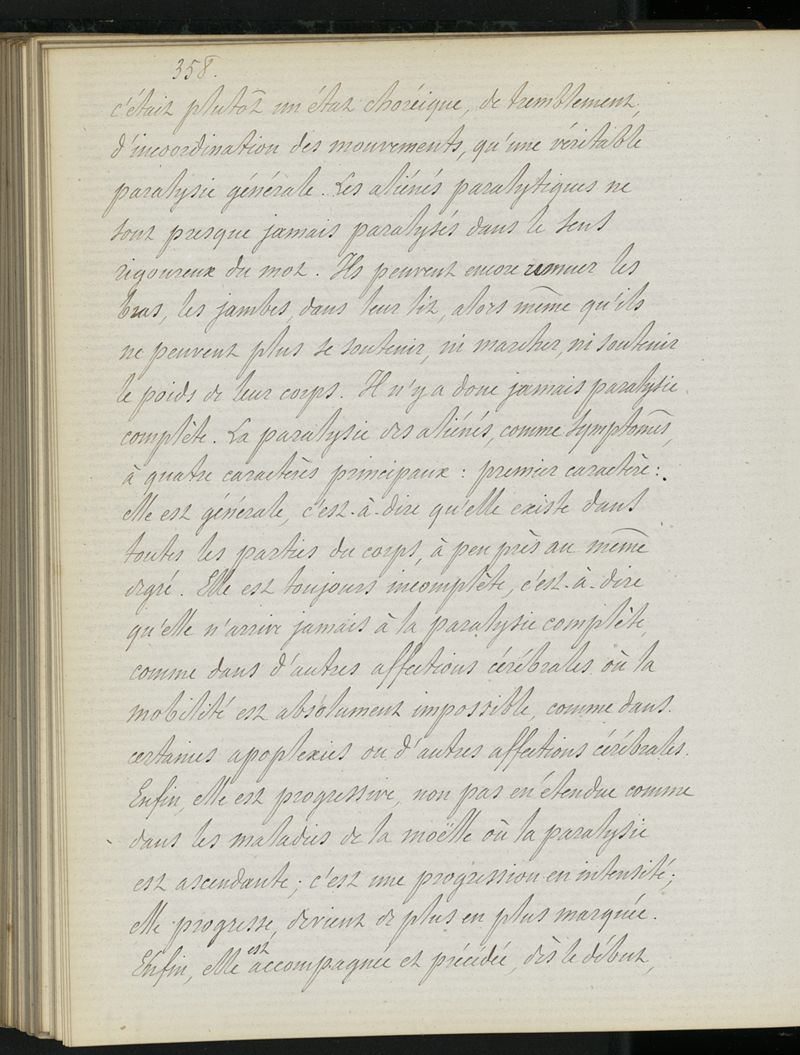 358.
c'était plutôt un état choréique, de tremblement,
d'incoordination des mouvements, qu'une véritable
paralysie générale. Les aliénés paralytiques ne
sont presque jamais paralysés dans le sens
rigoureux du mot. Ils peuvent encore remuer les
bras, les jambes, dans leur lit, alors même qu'ils
ne peuvent plus se soutenir, ni marcher, ni soutenir
le poids de leur corps. Il n'y a donc jamais paralysie
complète. La paralysie des aliénés, comme symptômes,
à quatre caractères principaux : premier caractère :
elle est générale, c'est-à-dire qu'elle existe dans
toutes les parties du corps, à peu près au même
degré. Elle est toujours incomplète, c'est-à-dire
qu'elle n'arrive jamais à la paralysie complète
comme dans d'autres affections cérébrales où la
mobilité est absolument impossible, comme dans
certaines apoplexies ou d'autres affections cérébrales.
Enfin, elle est progressive, non pas en étendue comme
dans les maladies de la moëlle où la paralysie
est ascendante ; c'est une progression en intensité ;
elle progresse, devient de plus en plus marquée.
Enfin, elle est accompagnée et précédée, dès le début,